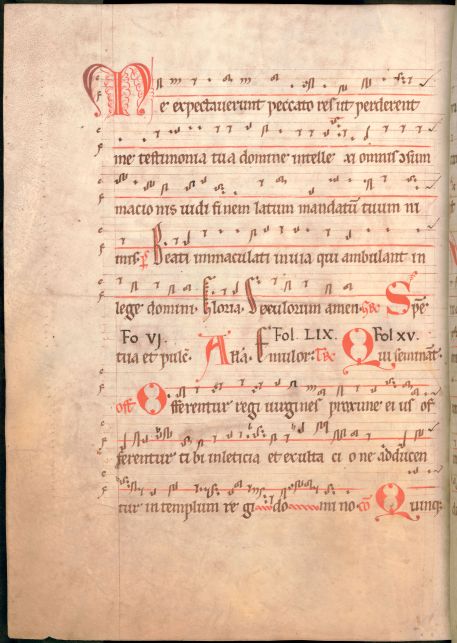 Me expectaverunt peccato res ut perderent
me testimonia tua domine intelle xi omnis ɔsum
macio nis vidi finem latum mandatū tuum ni
mis. p̄s Beati immaculati in via qui ambulant in
lege domini. Gloria. Seculorum amen. Spē.
Fo VJ. Fol LIX. Fol XV.
tua et pulc̄. Alľa. Emulor. Tx̄ Qui semināt.
off̄ Offerentur regi virgines proxime ei us of
ferentur ti bi in leticia et exulta ci o ne adducen
tur in templum re gi do mi no. cō Quinq;